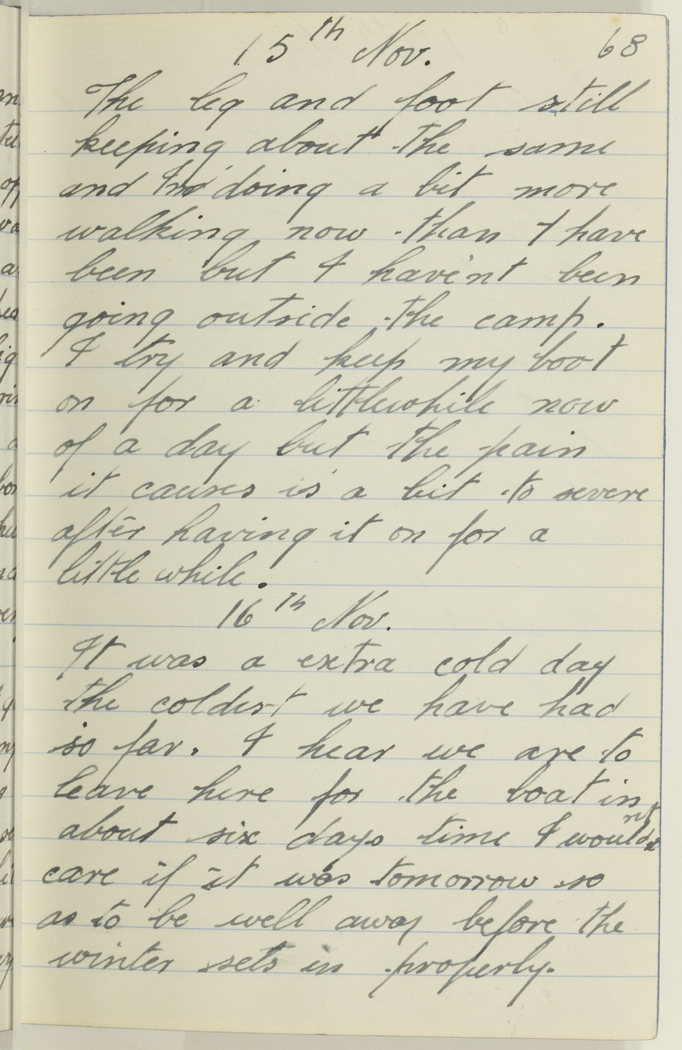 15th Nov. 68
The leg and foot still
keeping about the same
and I'm doing a bit more
walking now than I have
been but I have'nt been
going outside the camp.
I try and keep my boot
on for a littlewhile now
of a day but the pain
it causes is a bit to severe
after having it on for a
little while.
16th Nov.
It was a extra cold day
the coldest we have had
so far. I hear we are to
leave here for the boat in
about six days time I wouldn't
care if it was tomorrow so
as to be well away before the
winter sets in properly.